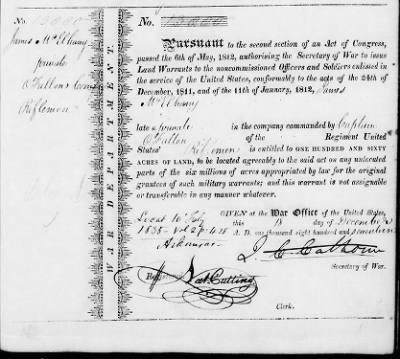 No. 13000
James McElhany
private
O'Fallons Comp
Riflemen
WAR DEPARTMENT.
No. 13,000
Pursuant to the second section of an Act of Congress,
passed the 6th of May, 1812, authorising the Secretary of War to issue
Land Warrants to the noncommissioned Officers and Soldiers enlisted in
the service of the United States, conformably to the acts of the 24th of
December, 1811, and of the 11th of January, 1812, James
McElhany
late a private in the company commanded by Captain
O'Fallon of the Regiment United
States Riflemen is entitled to ONE HUNDRED AND SIXTY
ACRES OF LAND, to be located agreeably to the said act on any unlocated
parts of the six millions of acres appropriated by law for the original
grantees of such military warrants; and this warrant is not assignable
or transferable in any manner whatever.
GIVEN at the War Office of the United States,
this 13 day of December
A. D. one thousand eight hundred and seventeen
Locat 10 Feby
1835 - Vol 2 p 428
Arkansas
J. C. Calhoun
Secretary of War.
Nat. Cutting
Clerk.